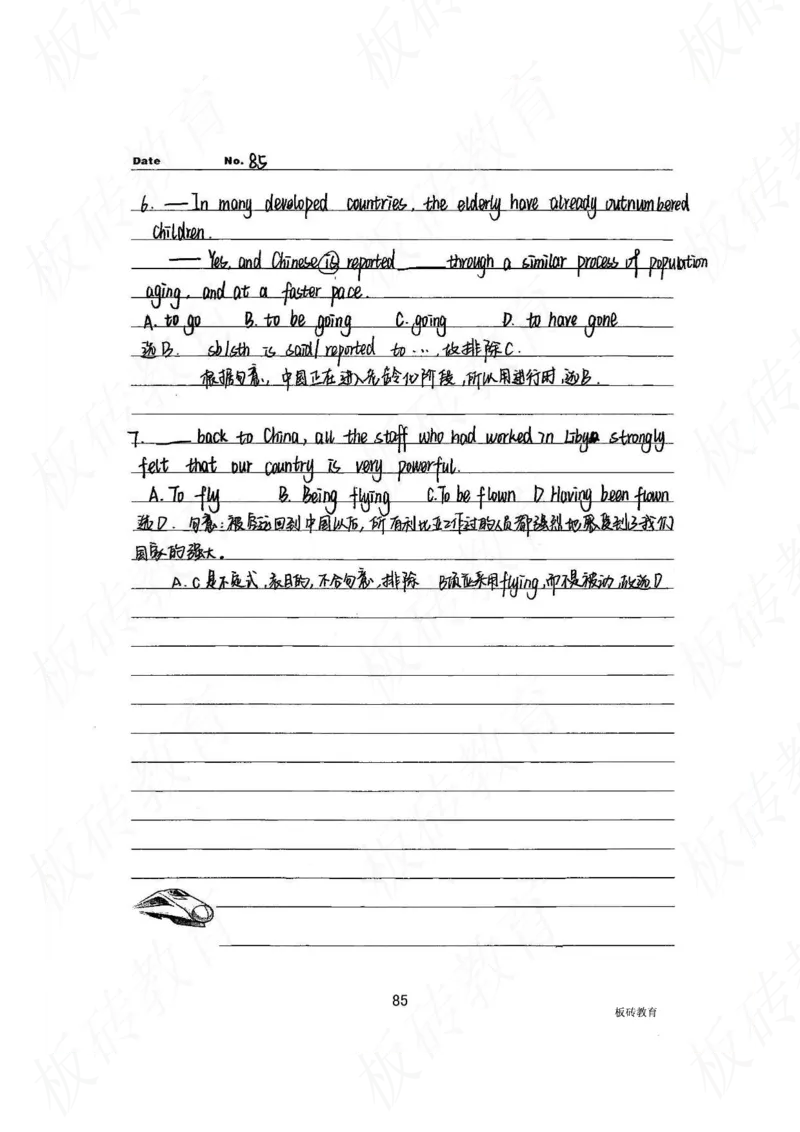 Date No. 85
6. — In many developed countries, the elderly have already outnumbered
children.
— Yes, and Chinese is reported ____ through a similar process of population
aging, and at a faster pace.
A. to go B. to be going C. going D. to have gone
选B. sb/sth is said/reported to ..., 故排除C.
根据句意, 中国正在进入老龄化阶段, 所以用进行时, 选B.
7. ____ back to China, all the staff who had worked in Libya strongly
felt that our country is very powerful.
A. To fly B. Being flying C. To be flown D Having been flown
选D. 句意: 被空运回到中国以后, 所有利比亚工作过的人员都强烈地感受到了我们
国家的强大.
A. C是不定式, 表目的, 不合句意, 排除 B项应采用flying, 而不是被动, 故选D
85
板砖教育